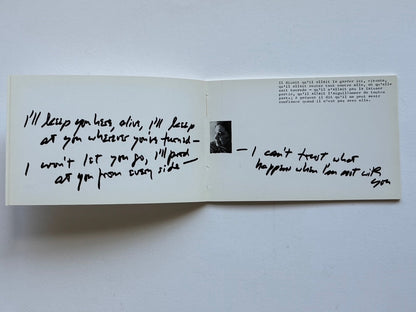 I'll keep you here, alive, I'll keep
at you wherever you're turned —
I won't let you go, I'll prod
at you from every side —
Il disait qu'il allait la garder ici, vivante,
qu'il allait tout contre elle, où qu'elle
soit tournée - qu'il n'allait pas la laisser
partir, qu'il allait l'aiguillonner de toutes
parts, à présent il dit qu'il ne peut avoir
confiance quand il n'est pas avec elle.
— I can't trust what
happens when I'm not with
you